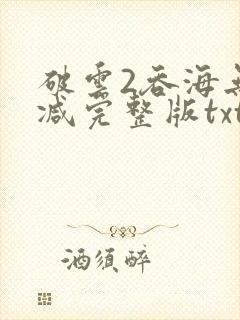 破雲2吞海無
减完整版txt
酒須醉